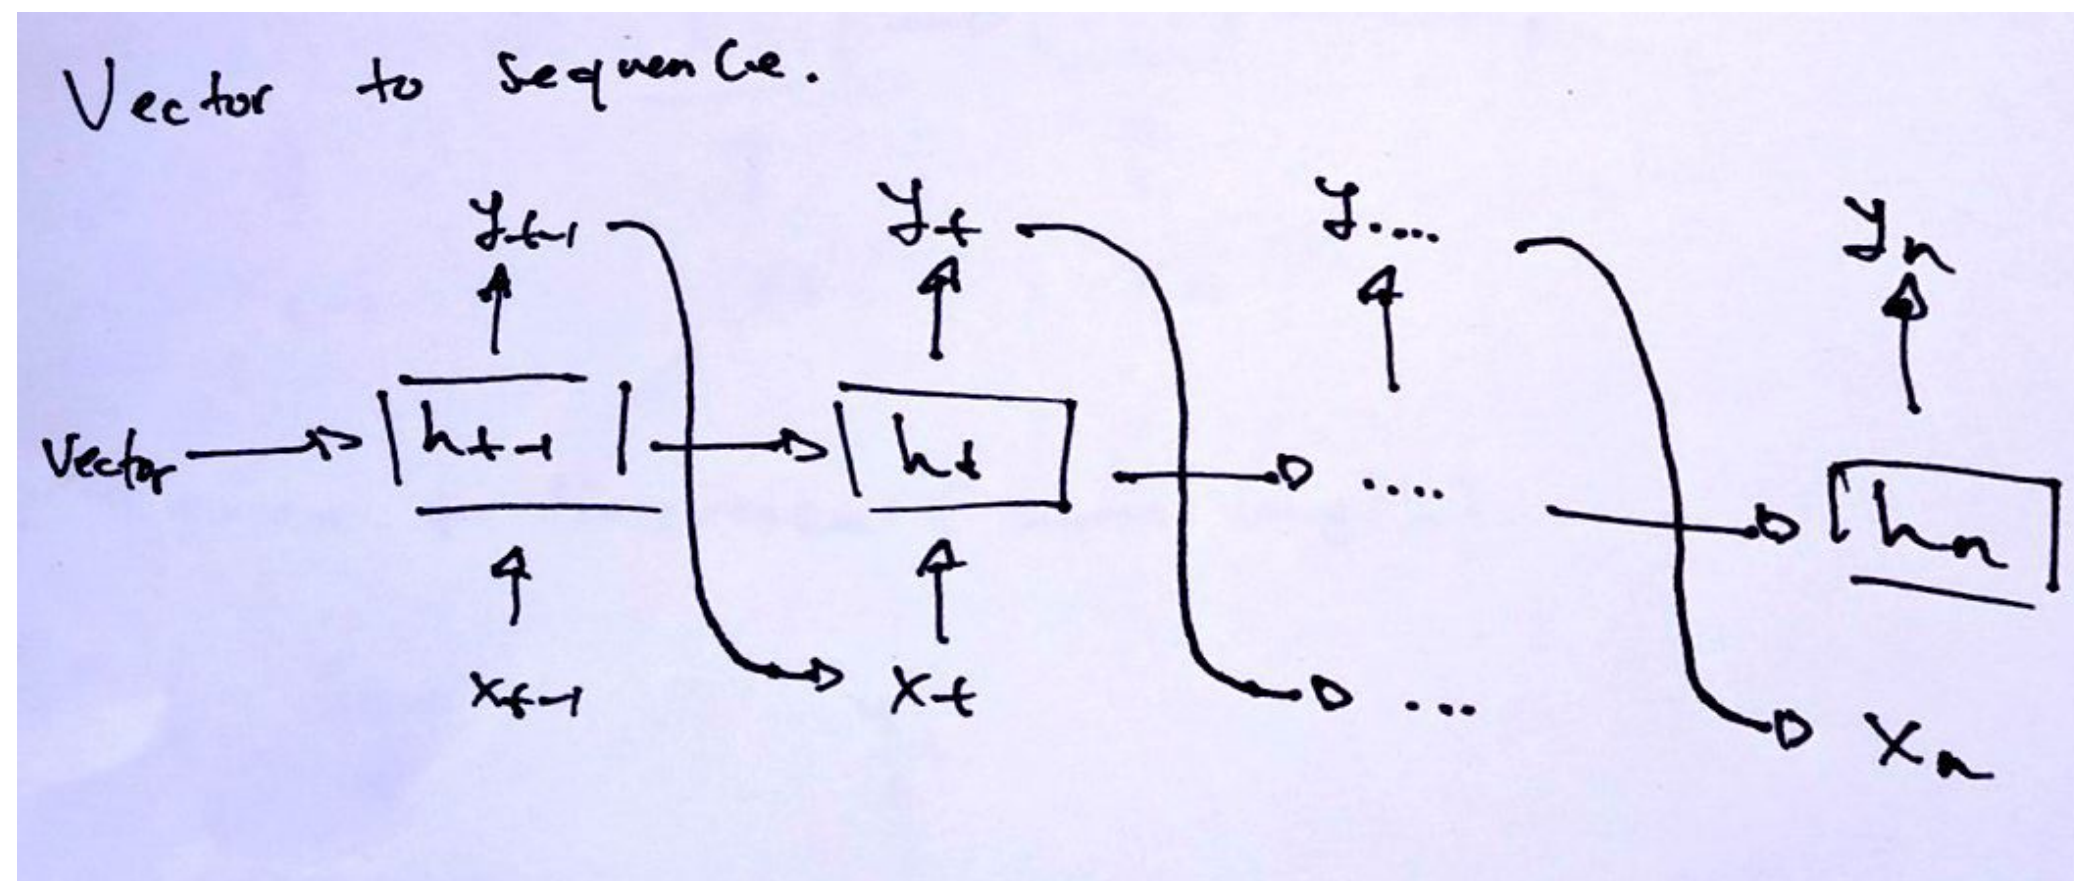 Vector to sequence.
y_{t-1} y_t y.... y_n
vector h_{t-1} h_t .... h_n
x_{t-1} x_t ... x_n